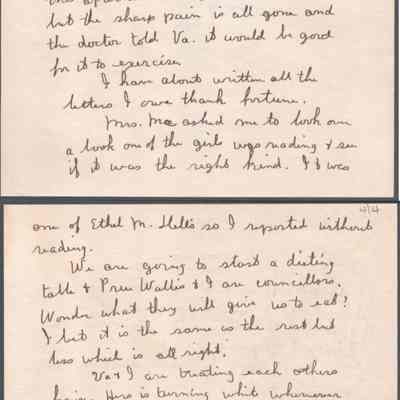 but the sharp pain is all gone and
the doctor told Va. it would be good
for it to exercise.
I have about written all the
letters I owe thank fortune.
Mrs. Mac asked me to look over
a book one of the girls was reading & see
if it was the right kind. It was
4/4
one of Ethel M. Dell's so I reported without
reading.
We are going to start a dieting
table & Prue Wallis & I are councillors.
Wonder what they will give us to eat!
I bet it is the same as the rest but
less which is all right.
Va & I are treating each others
hair. Hers is turning white whenever